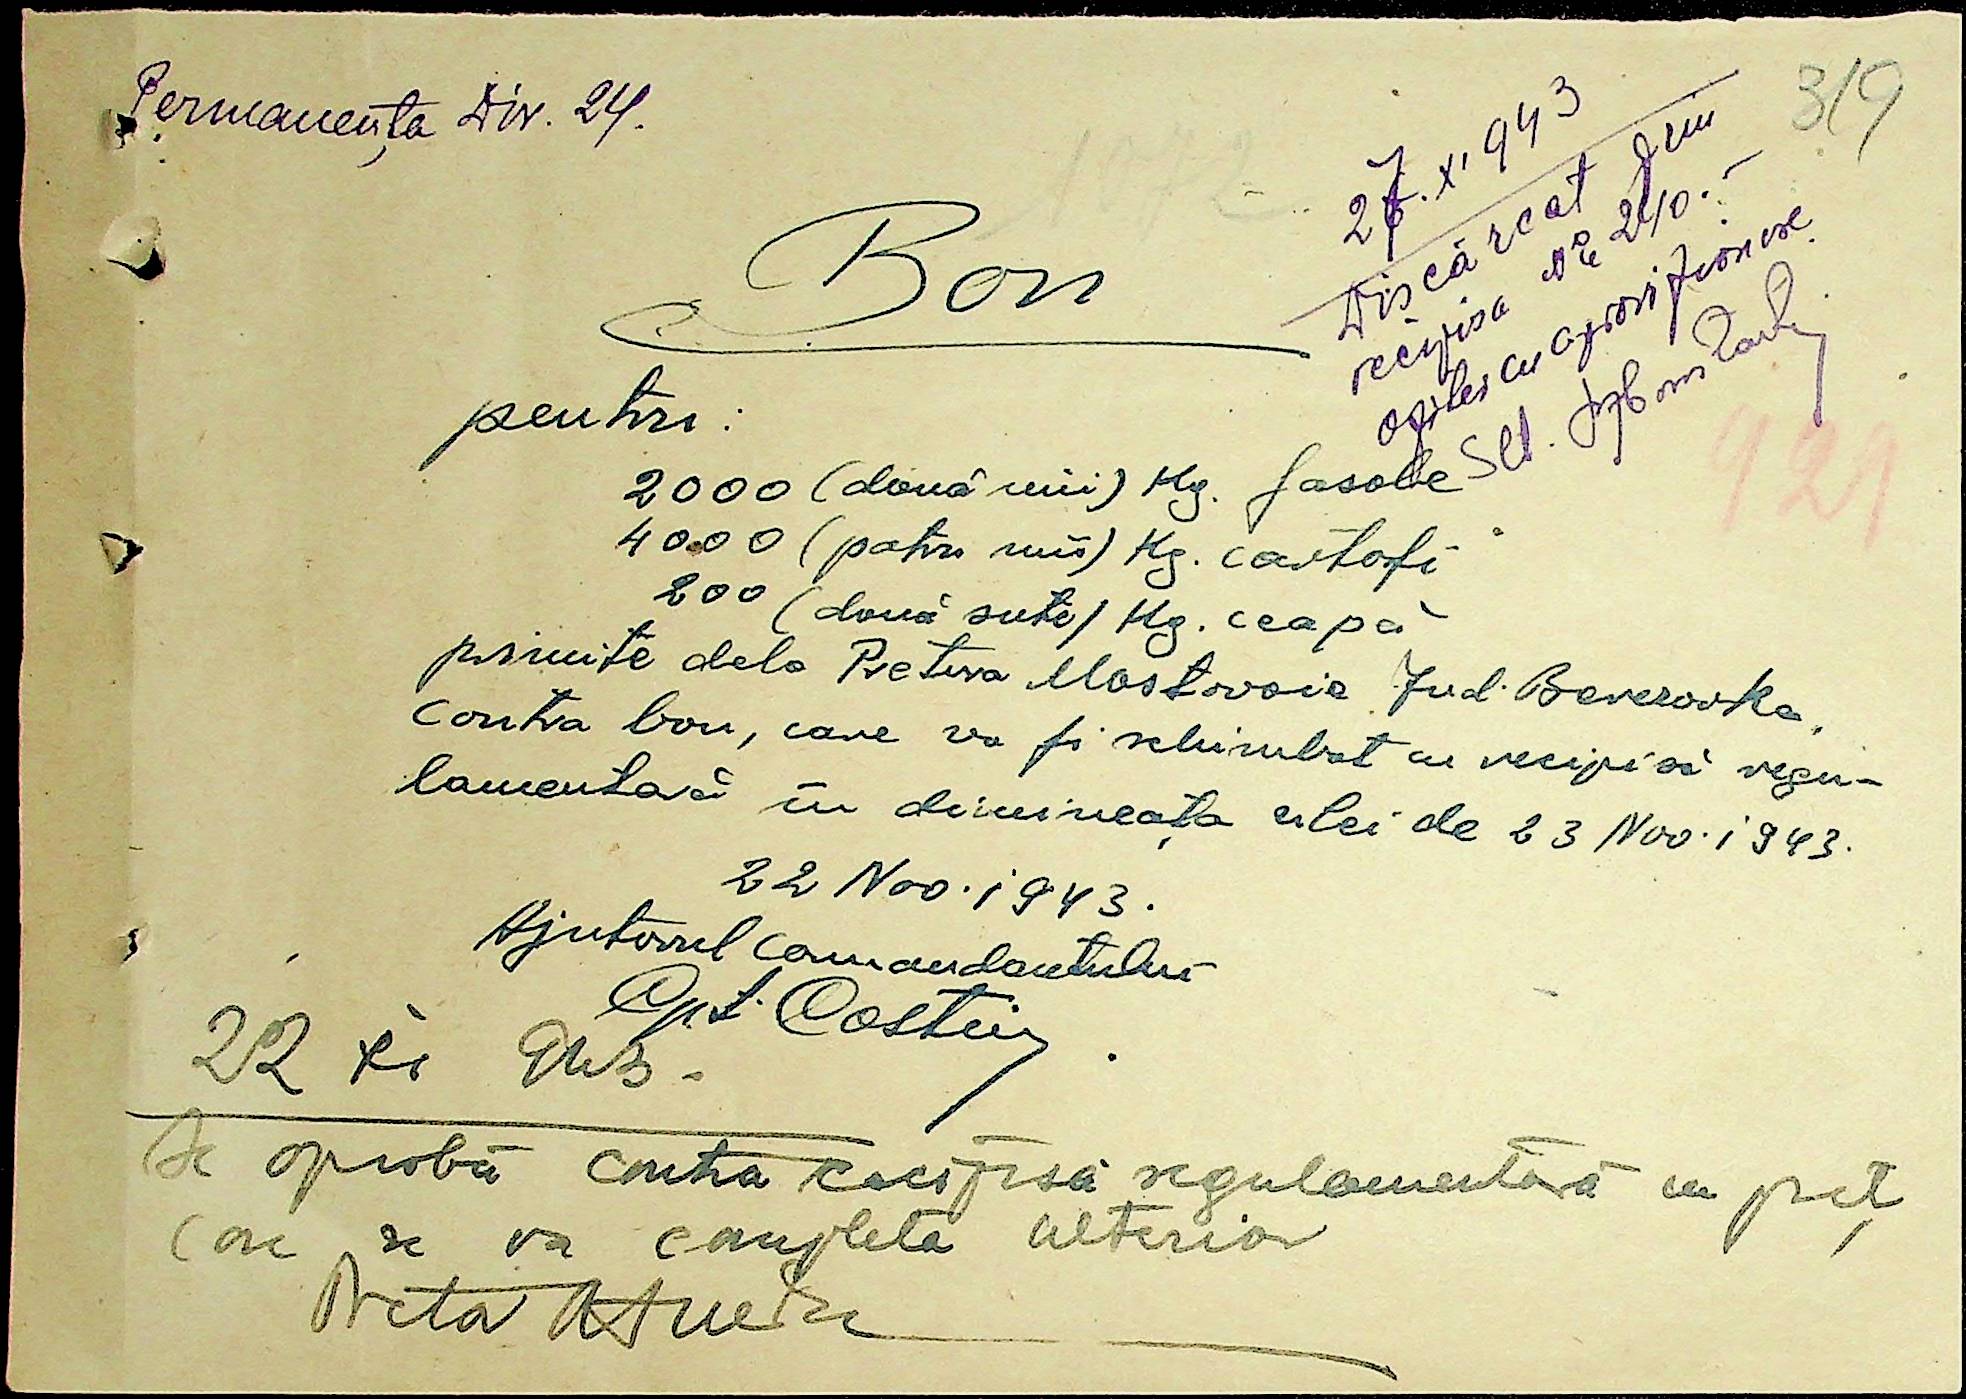 Permanența Div. 24.
319
1072
27.XI.943
Discărcat prin
recipisa No 240.-
ofițer cu aprovizionare
Slt.
Bon
pentru:
2000 (două mii) Kg. fasole
4000 (patru mii) Kg. cartofi
200 (două sute) Kg. ceapă
primite dela Pretura Mostovoie Jud. Berezovka,
contra bon, care va fi schimbat cu recipisă regu-
lamentară în dimineața zilei de 23 Nov. 1943.
22 Nov. 1943.
Ajutorul comandantului
Cpt. Costin
921
22 XI 943.
Se aprobă contra recipisă regulamentară cu preț
care se va completa ulterior
Pretor